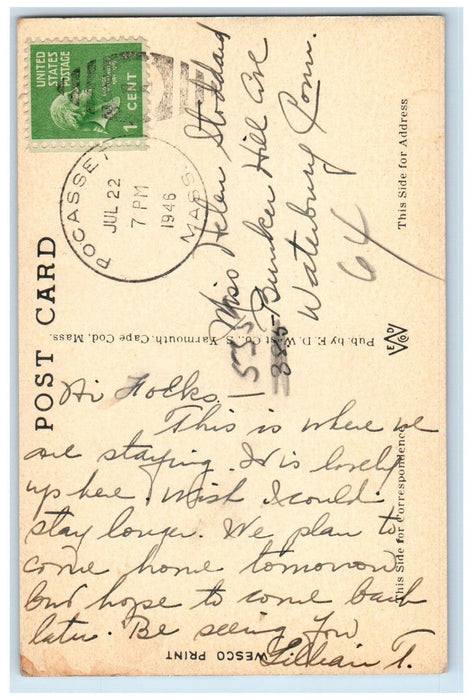 UNITED
STATES
POSTAGE
1 CENT
POCASSET
MASS.
JUL 22
7 PM
1946
POST CARD
Miss Helen Stoddard
535
885 Bunker Hill Ave
Waterbury Conn.
64
This Side for Address
Pub. by E. D. West Co., S. Yarmouth, Cape Cod, Mass.
Hi Folks –
This is where we
are staying. It is lovely
up here. Wish I could
stay longer. We plan to
come home tomorrow
but hope to come back
later. Be seeing you
Lillian T.
This Side for Correspondence
WESCO PRINT